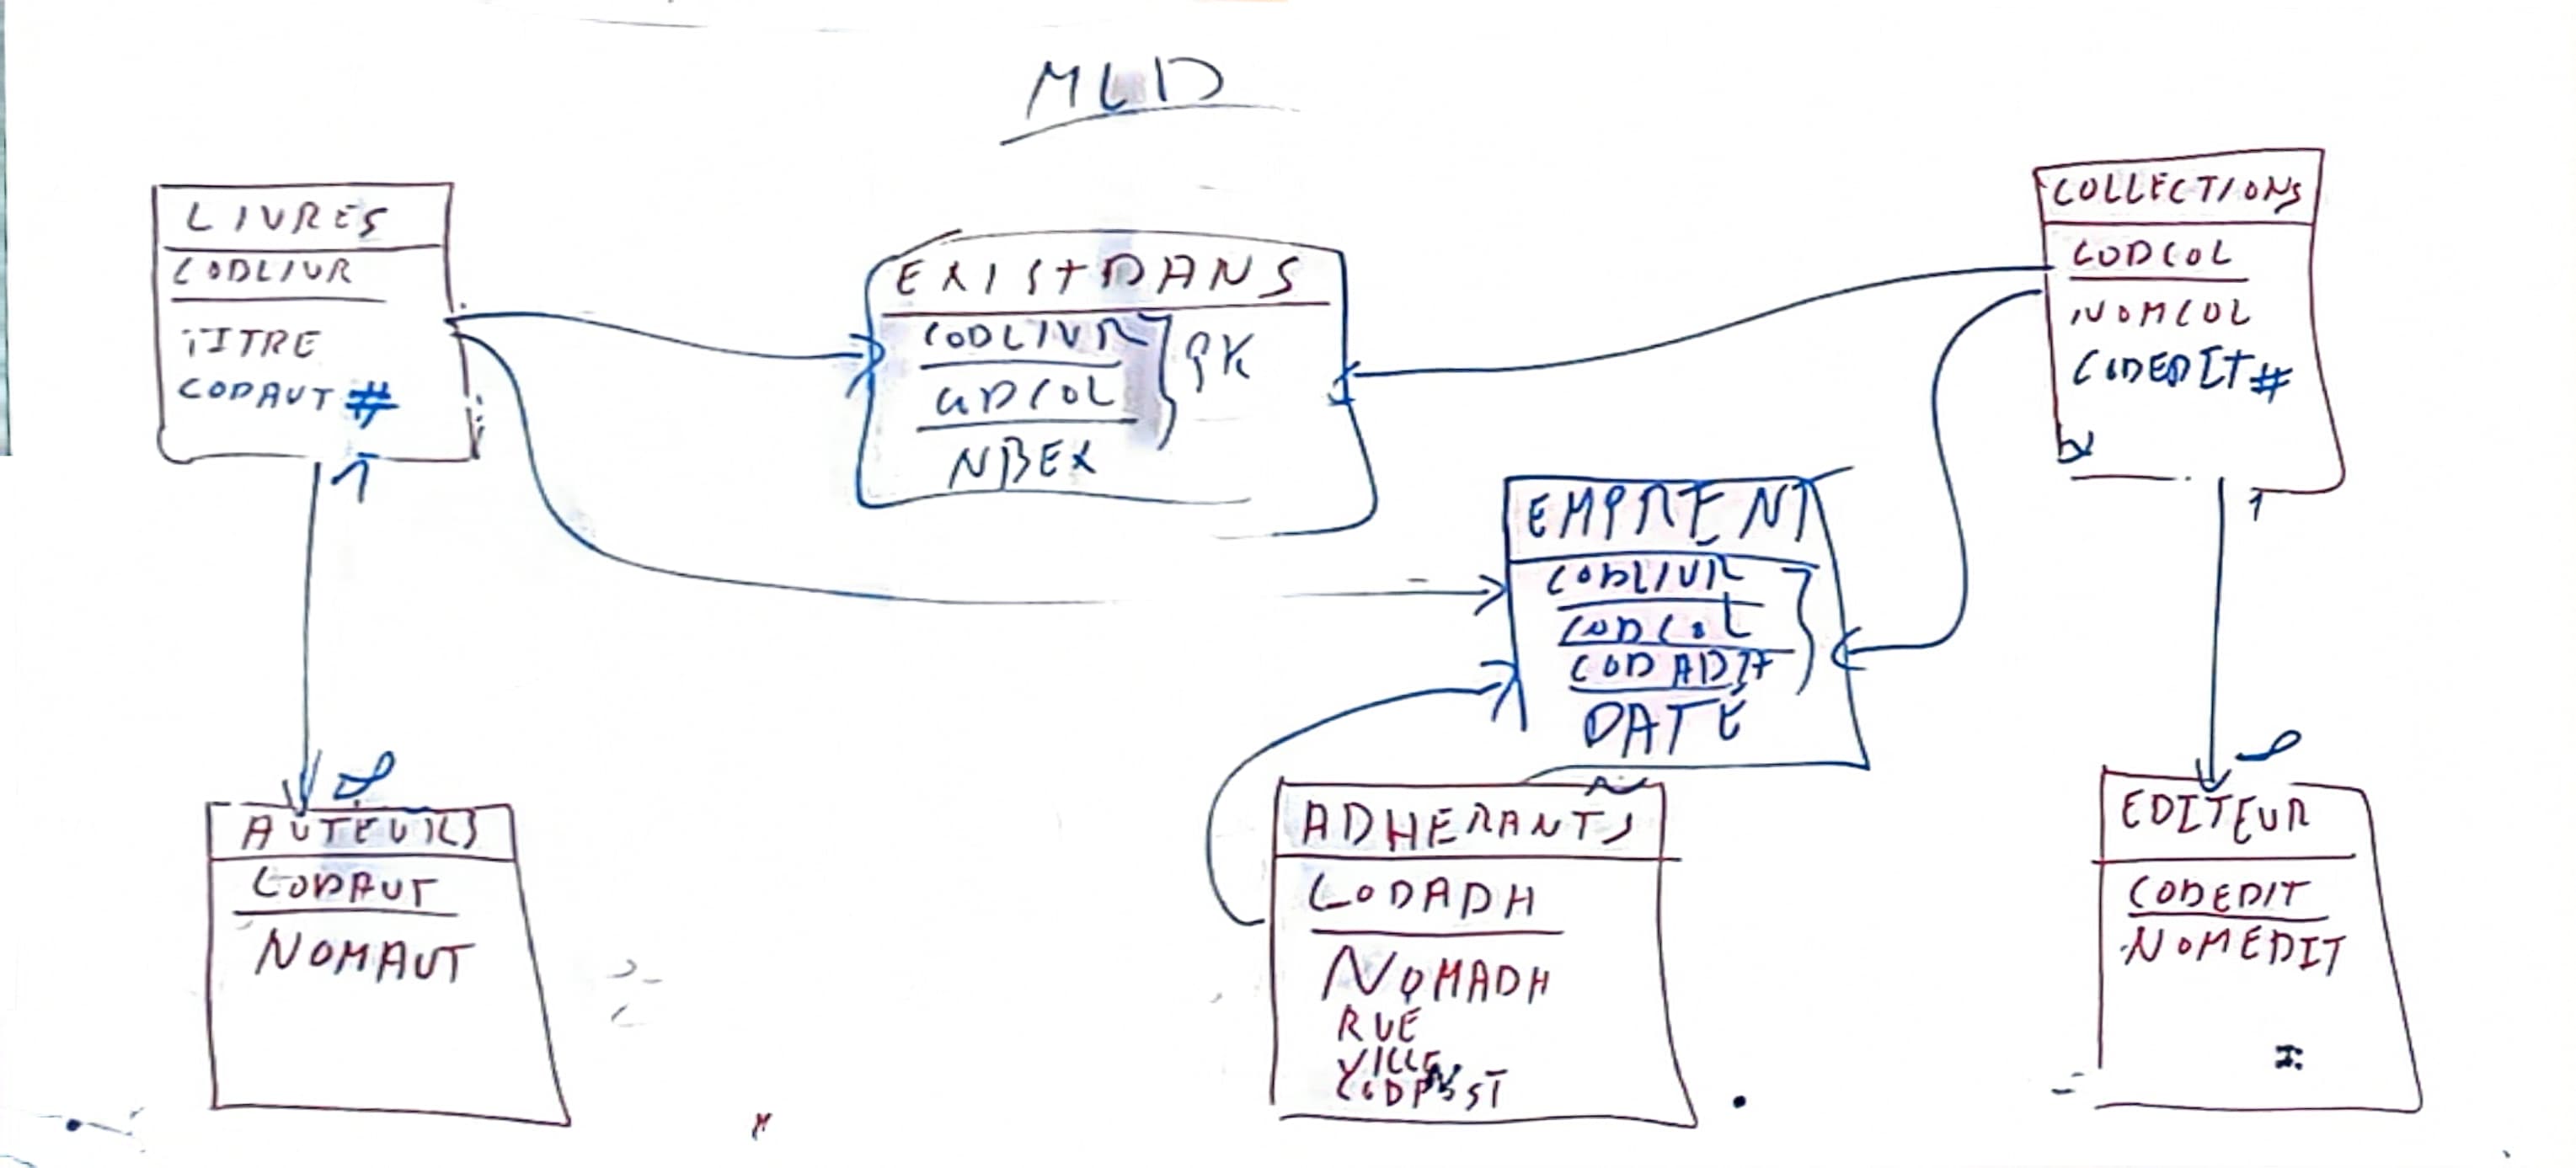 MLD
LIVRES
CODLIVR
TITRE
CODAUT #
1
EXISTDANS
CODLIVR
CODCOL
PK
NBEX
COLLECTIONS
CODCOL
NOMCOL
CODEDIT #
1
EMPRENT
CODLIVR
CODCOL
CODADH
DATE
∞
AUTEURS
CODAUT
NOMAUT
ADHERANTS
CODADH
NOMADH
RUE
VILLE
CODPOST
∞
EDITEUR
CODEDIT
NOMEDIT